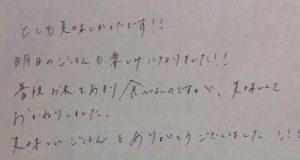 とても美味しかったです!!
明日のごはんも楽しみになりました!!
普段お米をあまり食べないのですが、美味しくて
おかわりしました。
美味しいごはんをありがとうございました!!